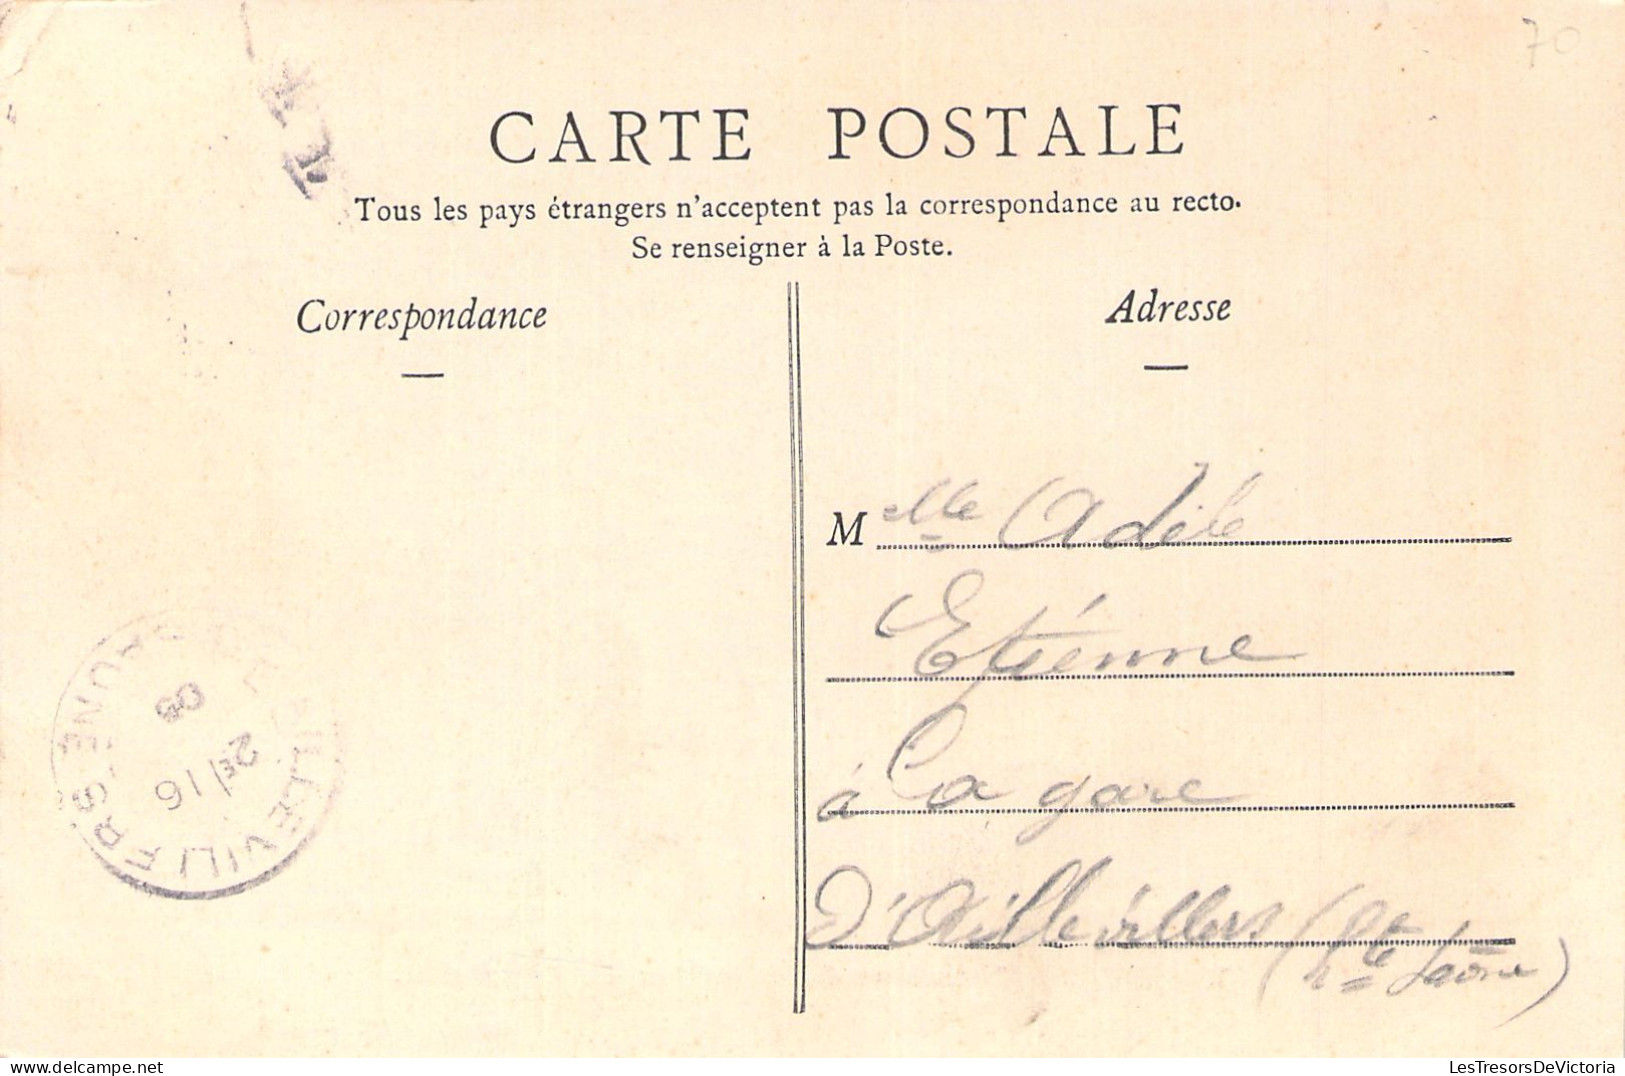 70
CARTE POSTALE
Tous les pays étrangers n'acceptent pas la correspondance au recto.
Se renseigner à la Poste.
Correspondance
Adresse
Melle Adèle
Etiénne
à La gare
D'Aillevillers (Hte Saône)
AILLEVILLERS
SAONE
16
05
LesTresorsDeVictoria